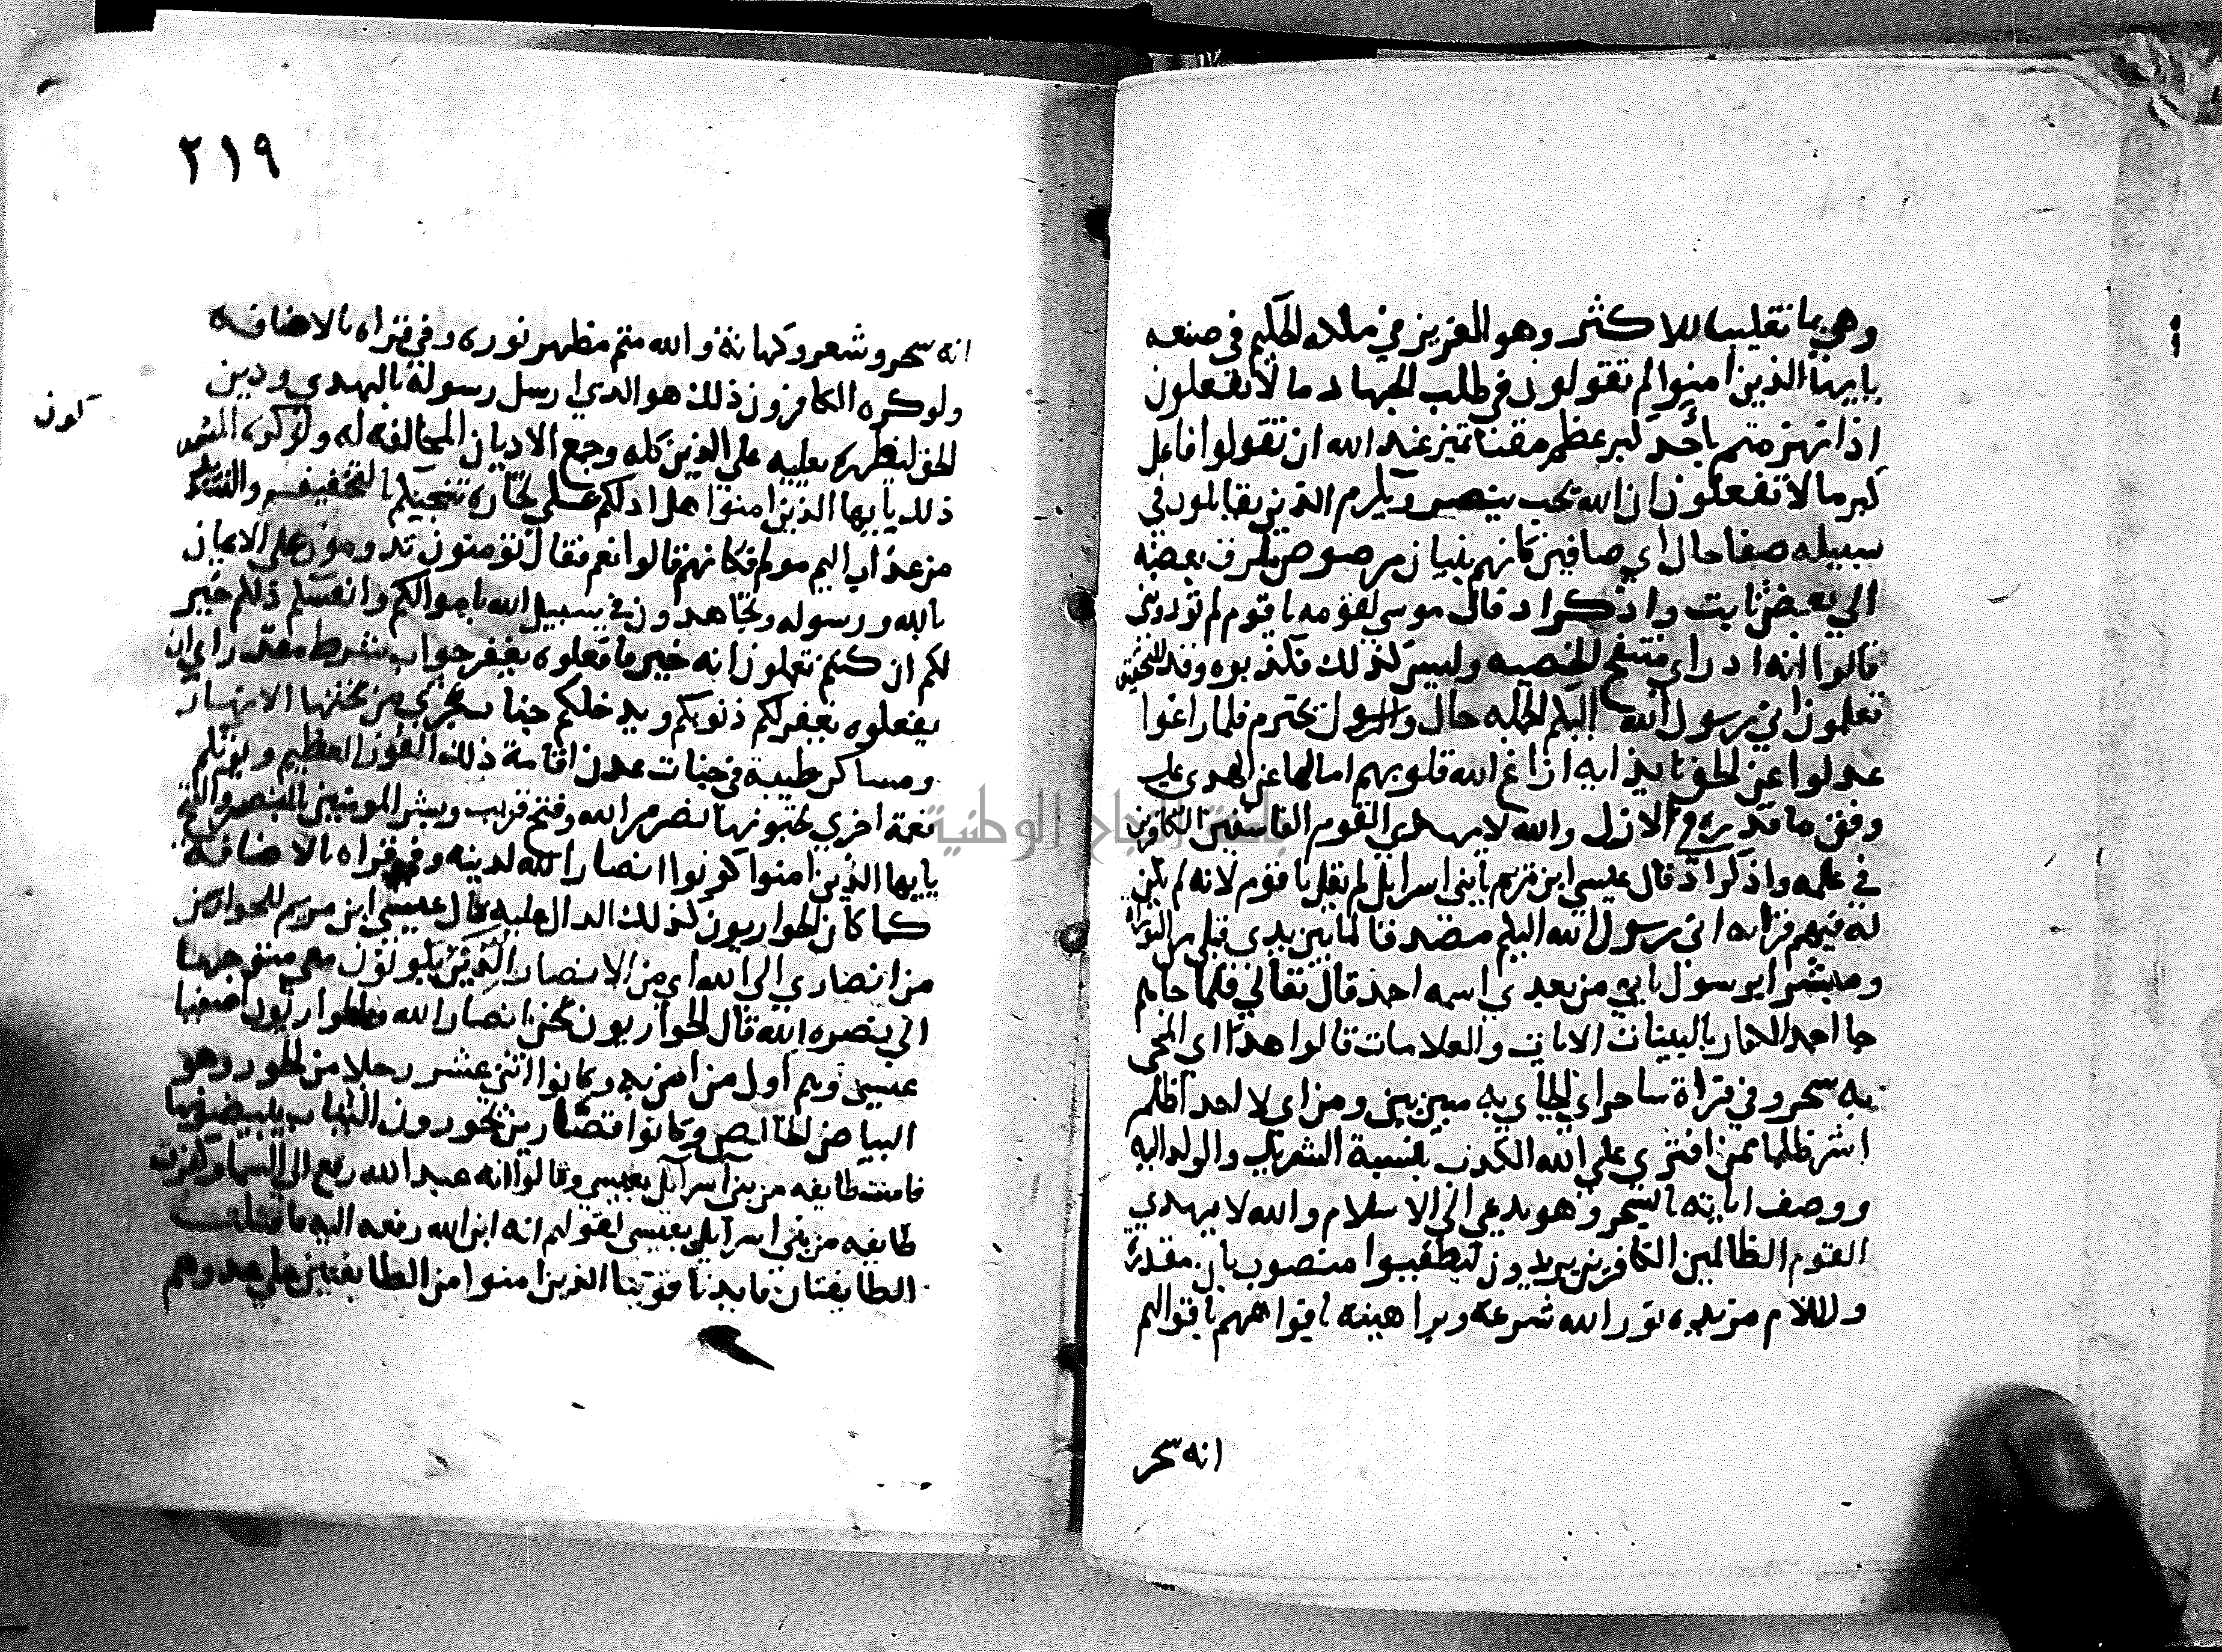 وهي بما تغليبا للاكثر وهو العزيز في ملكه الحكيم في صنعه
يايها الذين امنوا لم تقولون في طلب الجهاد ما لا تفعلون
اذا انهزمتم باحد كبر عظم مقتا تميز عند الله ان تقولوا فاعل
كبر ما لا تفعلون ان الله يحب ينصر ويكرم الذين يقاتلون في
سبيله صفا حال اي صافين كانهم بنيان مرصوص ملزق بعضه
الي بعض ثابت واذكر اد قال موسي لقومه ياقوم لم توذونني
قالوا انه ادر اي منتفخ الخصيه وليس كذلك فكذبوه وقد للتحقيق
تعلمون اني رسول الله اليكم الجمله حال والرسول يحترم فلما زاغوا
عدلوا عن الحق بايذايه ازاغ الله قلوبهم امالها عن الهدي علي
وفق ما قدره في الازل والله لا يهدي القوم الفاسقين الكافرين
في علمه واذكر اذ قال عيسي ابن مريم يابني اسرايل لم يقل ياقوم لانه لم يكن
له فيهم قرابه اني رسول الله اليكم مصدقا لما بين يدي قبلي من التوراة
ومبشرا برسول ياتي من بعدي اسمه احمد قال تعالي فلما جاهم
جا احمد الكفار بالبينات الايات والعلامات قالوا هذا اي المجي
به سحر وفي قراة ساحر اي الجاي به مبين بين ومن اي لا احد اظلم
اشد ظلما ممن افتري علي الله الكذب بنسبة الشريك والولد اليه
ووصف اياته بالسحر وهو يدعي الي الاسلام والله لا يهدي
القوم الظالمين الكافرين يريدون ليطفيوا منصوب بان مقدرة
واللام مزيده نور الله شرعه وبراهينه بافواههم باقوالهم
انه سحر
٢١٩
انه سحر وشعر وكهانة والله متم مظهر نوره وفي قراه بالاضافه
ولو كره الكافرون ذلك هو الذي ارسل رسوله بالهدي ودين
الحق ليظهره يعليه علي الدين كله وجميع الاديان المخالفه له ولو كره المشر
كون
ذلك يايها الذين امنوا هل ادلكم علي تجارة تنجيكم بالتخفيف والتشديد
من عذاب اليم مولم فكانهم قالوا نعم فقال تومنون تدومون علي الايمان
بالله ورسوله وتجاهدون في سبيل الله باموالكم وانفسكم ذلكم خير
لكم ان كنتم تعلمون انه خير فافعلوه يغفر جواب شرط مقدر اي ان
يفعلوه يغفر لكم ذنوبكم ويدخلكم جنات تجري من تحتها الانهار
ومساكن طيبة في جنات عدن اقامة ذلك الفوز العظيم ويوتكم
نعمة اخري تحبونها نصر من الله وفتح قريب وبشر المومنين بالنصر والفتح
يايها الذين امنوا كونوا انصار الله لدينه وفي قراه بالاضافة
كما كان الحواريون كذلك الدال عليه قال عيسي ابن مريم للحواريين
من انصاري الي الله اي من الانصار الذين يكونون معي متوجها
الي نصره الله قال الحواريون نحن انصار الله والحواريون اصفيا
عيسي وهم اول من امن به وكانوا اثني عشر رجلا من الحور وهو
البياض الخالص وكانوا قصارين يحورون الثياب يبيضونها
فامنت طايفه من بني اسرايل بعيسي وقالوا انه عبد الله رفع الي السما وكفرت
طايفه من بني اسرايل بعيسي لقولهم انه ابن الله رفعه اليه فاقتلت
الطايفتان فايدنا قوينا الذين امنوا من الطايفتين علي عدوهم
جامعة النجاح الوطنية